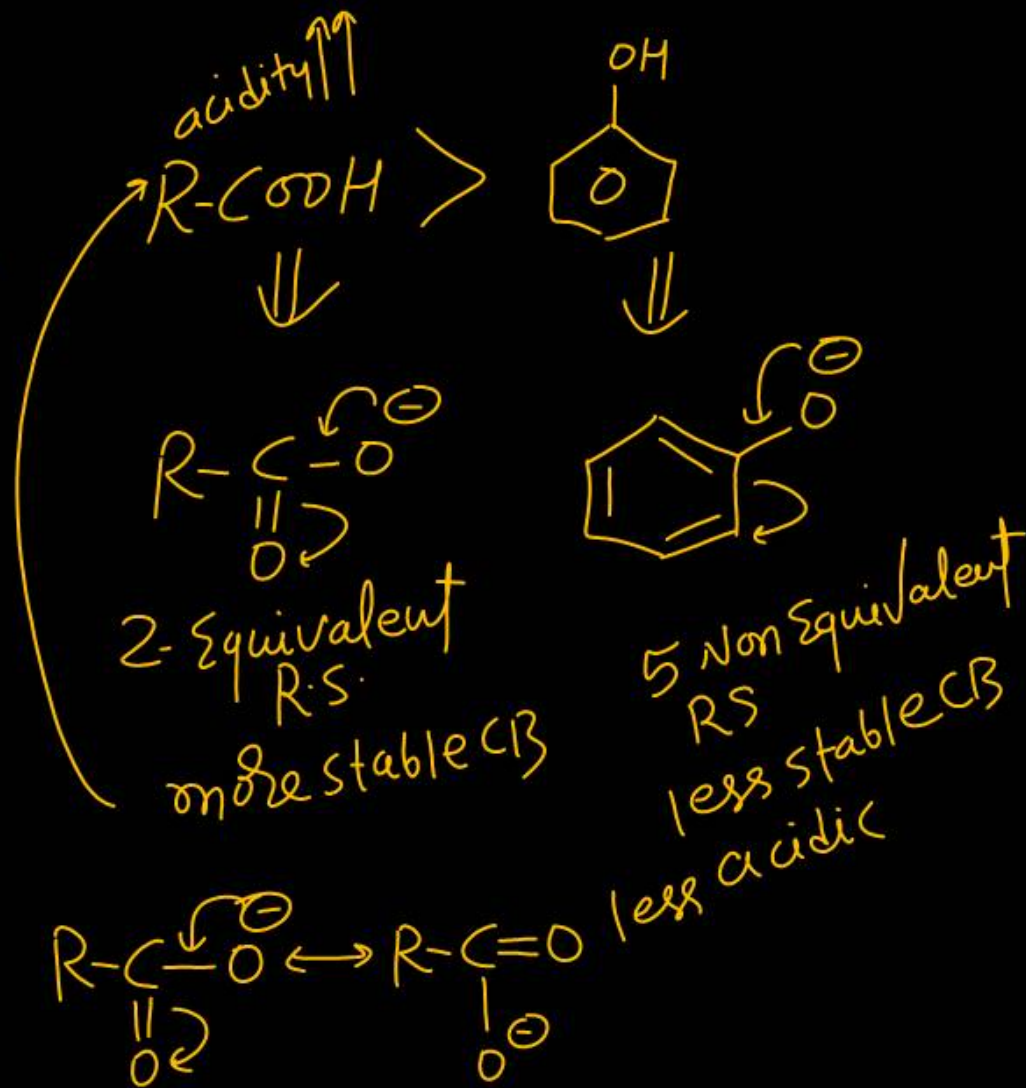 acidity↑↑
R-COOH >
OH
R-C-O ⊖
O
⊖
O
2-Equivalent
R.S.
more stable CB
5 Non Equivalent
RS
less stable CB
less acidic
R-C-O ⊖ ↔ R-C=O
O
O ⊖